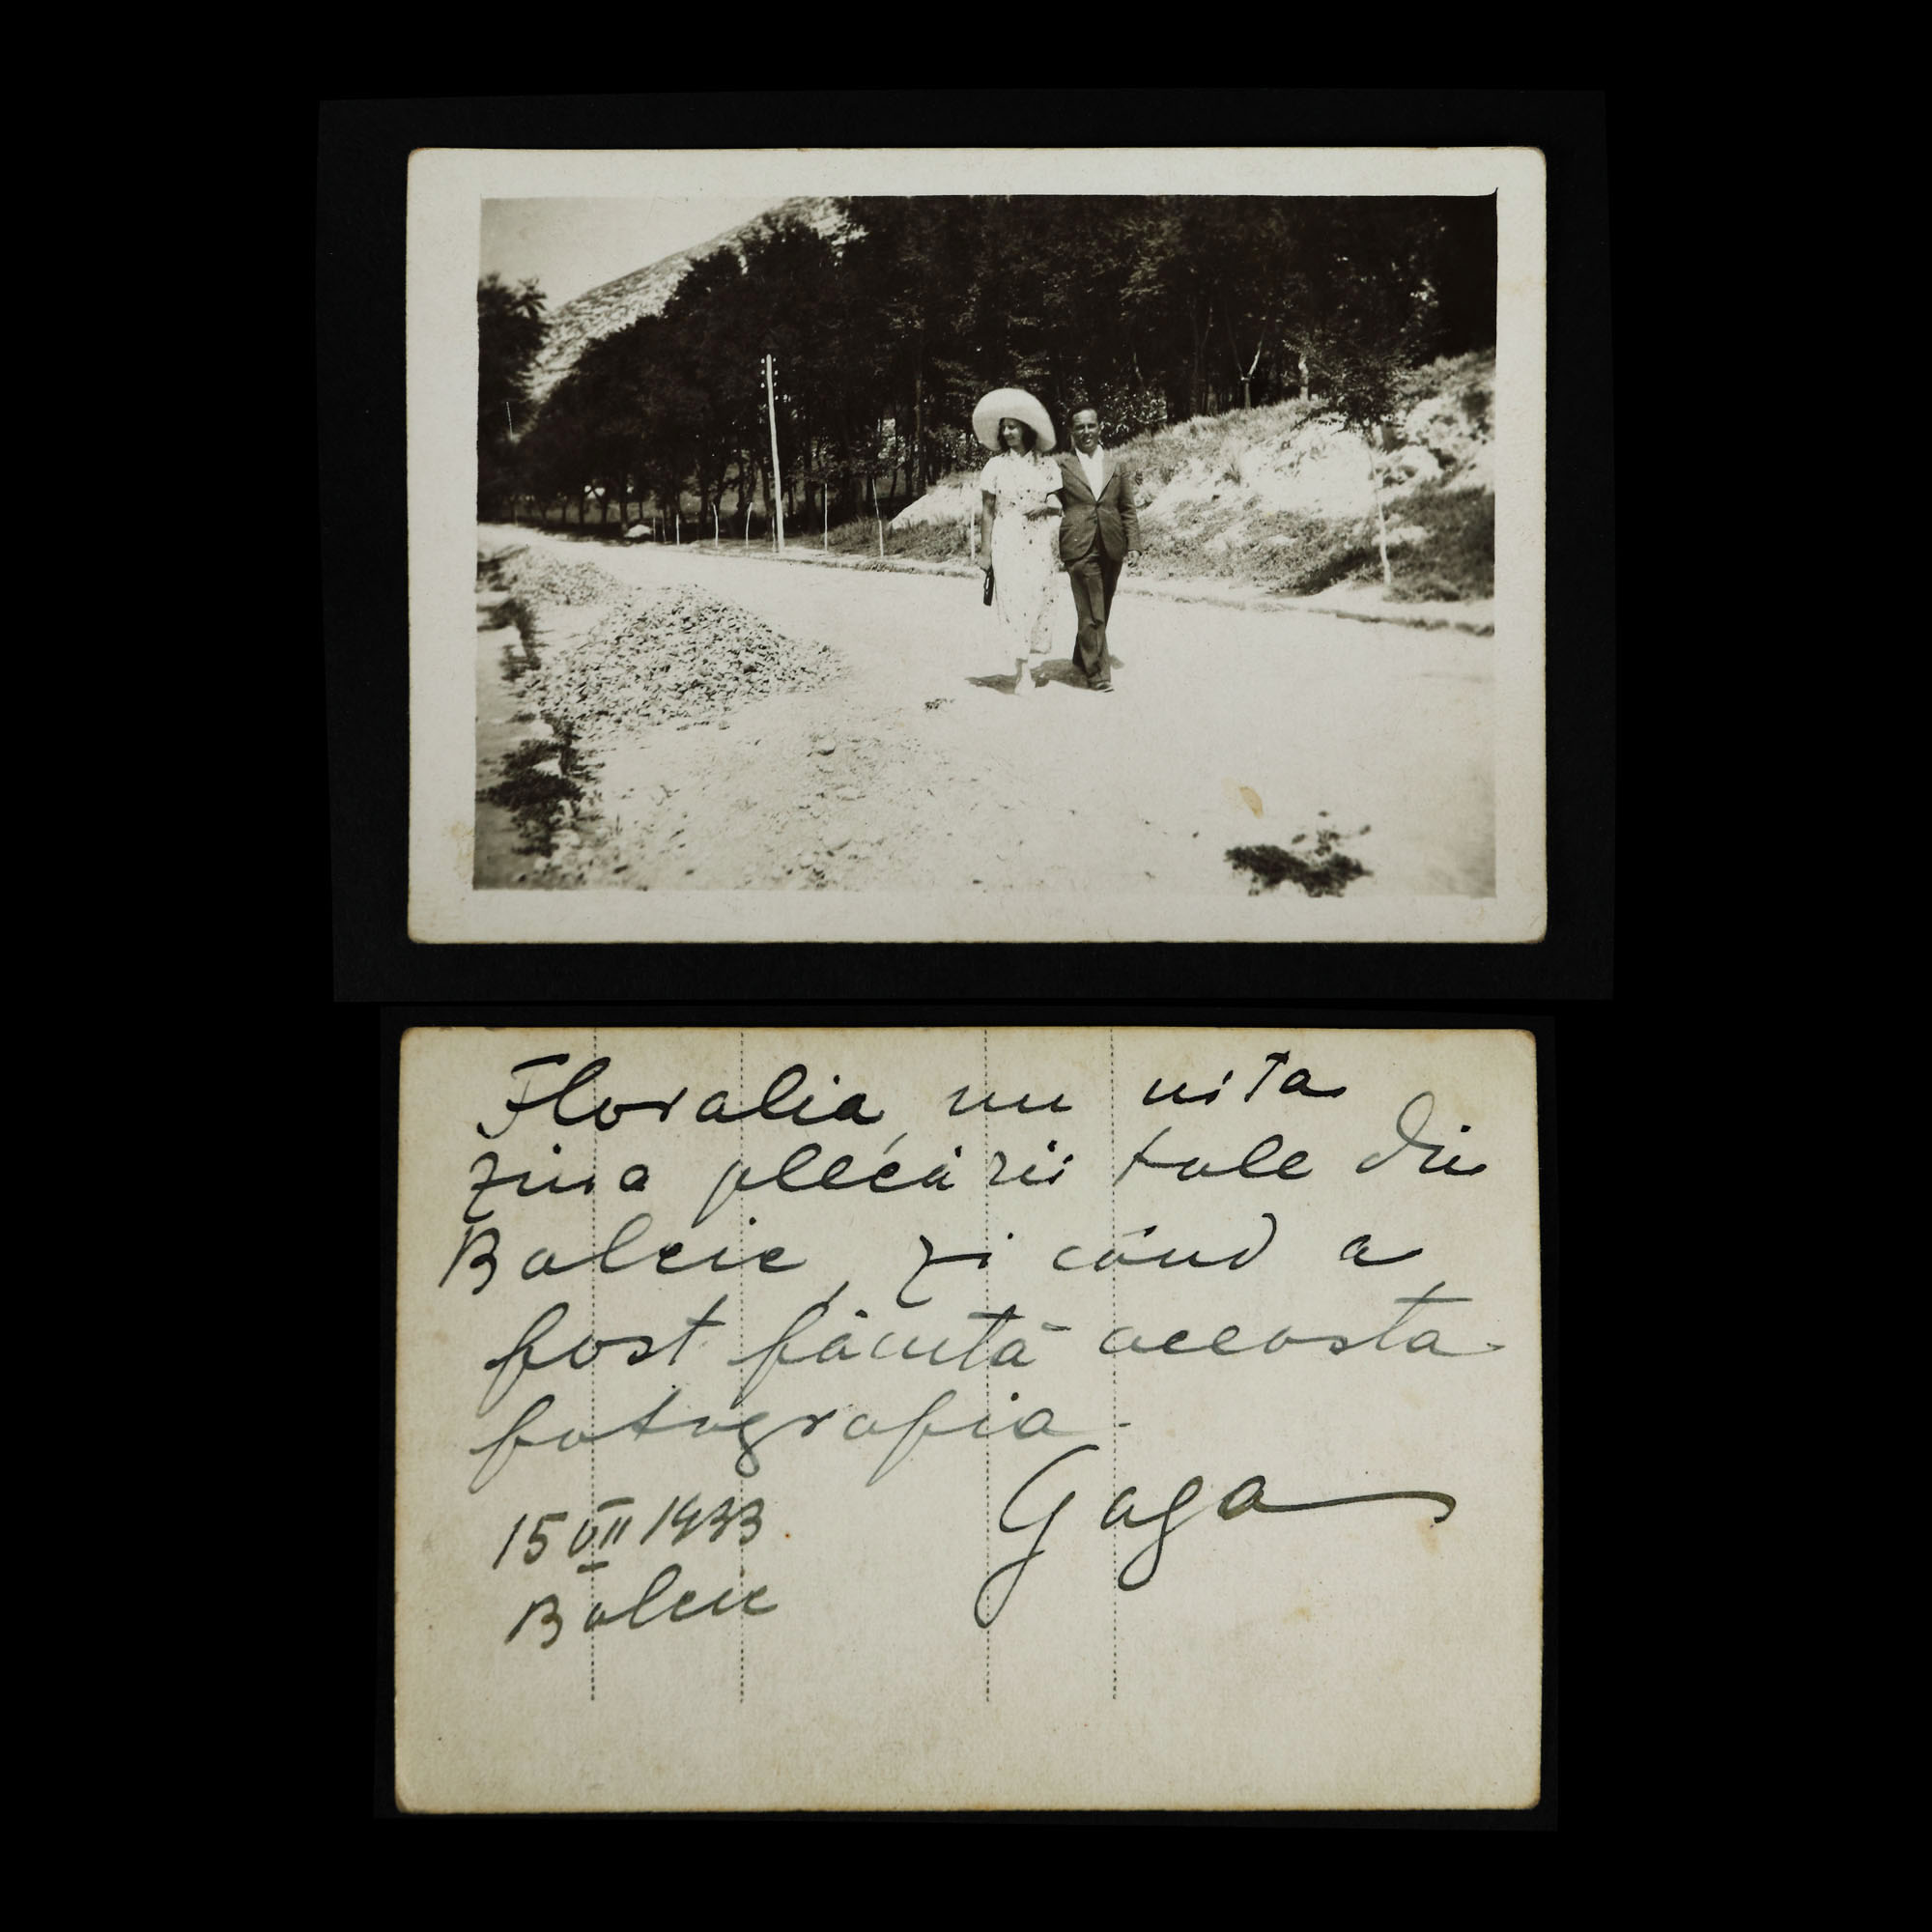 Floralia, nu uita
ziua plecării tale din
Balcic, zi când a
fost făcută aceasta
fotografia.
Gaga
15 VII 1933
Balcic